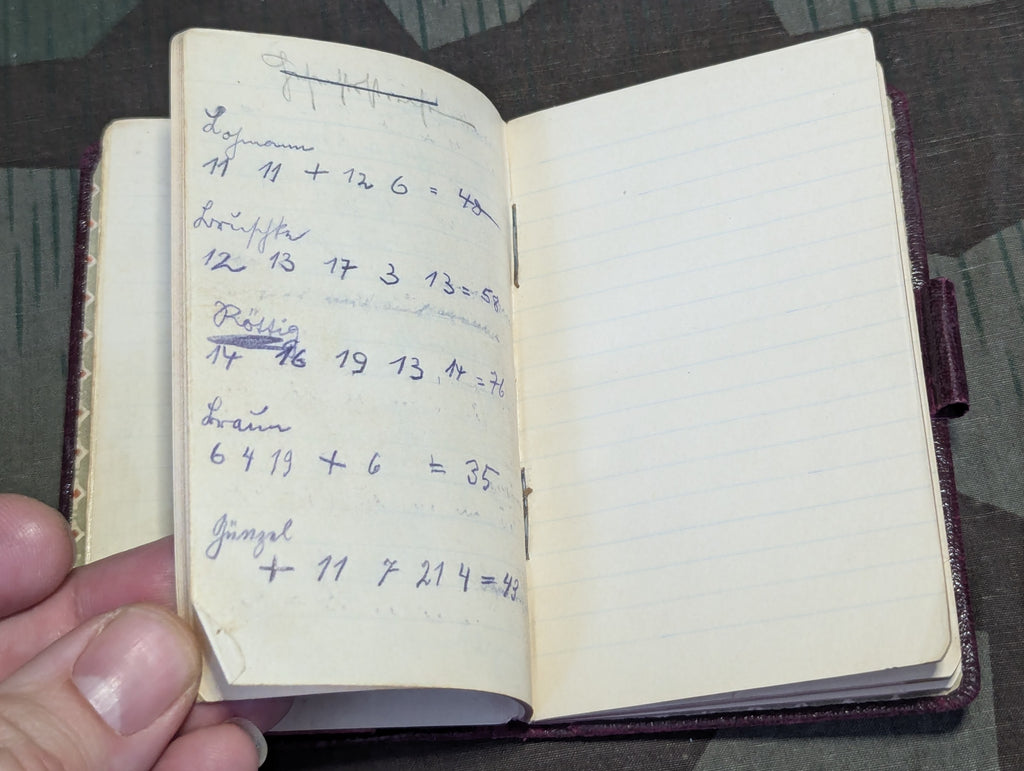 Lohmann
11 11 + 12 6 = 40
Bruschke
12 13 17 3 13 = 58
Röttig
14 16 19 13 14 = 76
Braun
6 4 19 + 6 = 35
Günzel
+ 11 7 21 4 = 43